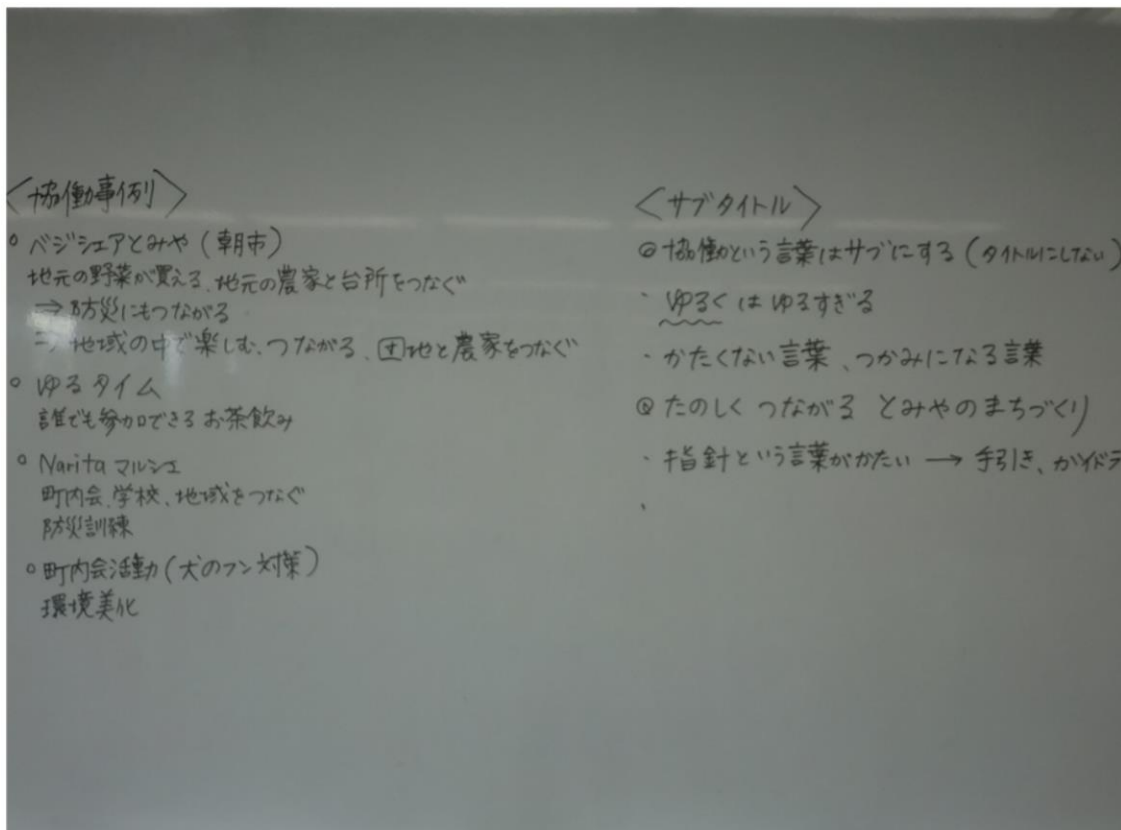 <協働事例>
○ ベジシェアとみや (朝市)
地元の野菜が買える、地元の農家と台所をつなぐ
⇒ 防災にもつながる
⇒ 地域の中で楽しむ、つながる、団地と農家をつなぐ
○ ゆるタイム
誰でも参加できるお茶飲み
○ Narita マルシェ
町内会、学校、地域をつなぐ
防災訓練
○ 町内会活動 (犬のフン対策)
環境美化
<サブタイトル>
◎ 協働という言葉はサブにする (タイトルにしない)
・ ゆるく は ゆるすぎる
・ かたくない言葉、つかみになる言葉
◎ たのしく つながる とみやのまちづくり
・ 指針という言葉がかたい → 手引き、ガイドラ
・